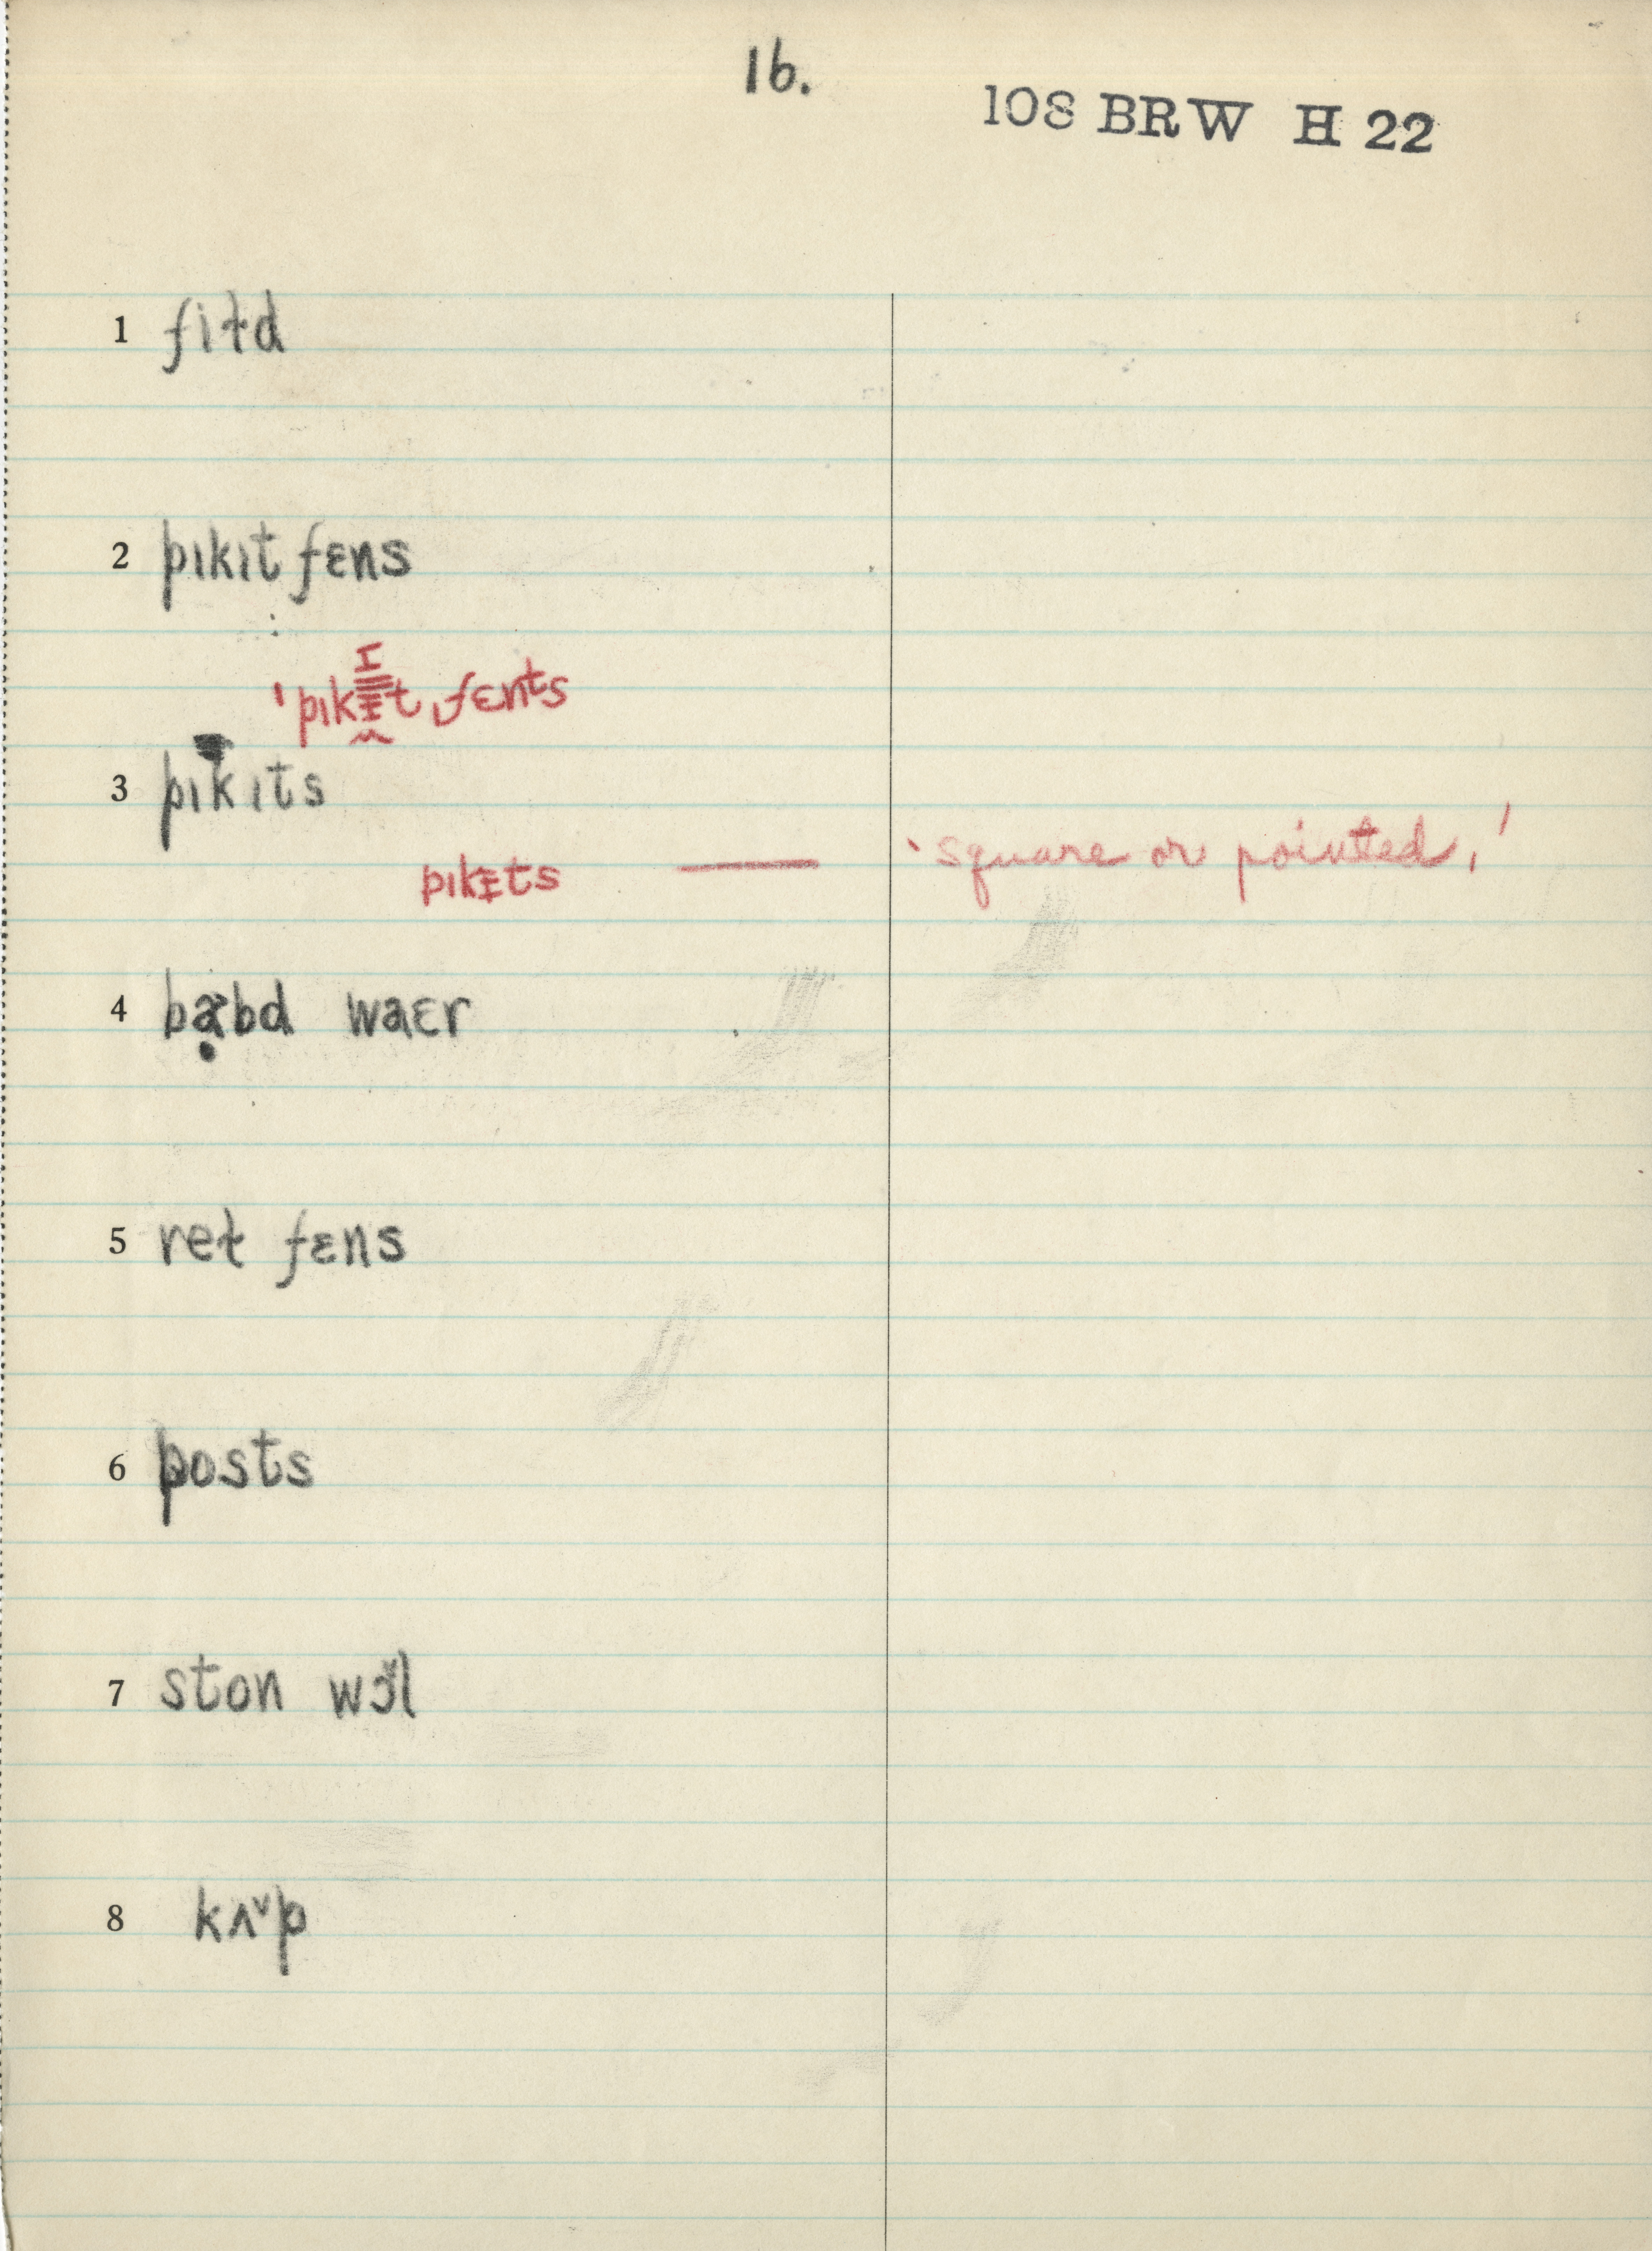 16.
108 BRW H 22
1 fiɫd
2 pɪkɪt fɛns
'pɪkɨt ˌfɛnts
3 pɪkɪts
pɪkɨts — ‘square or pointed,’
4 bạ˞bd waɛr
5 reɫ fɛns
6 posts
7 ston wɔ̌l
8 kʌˇp